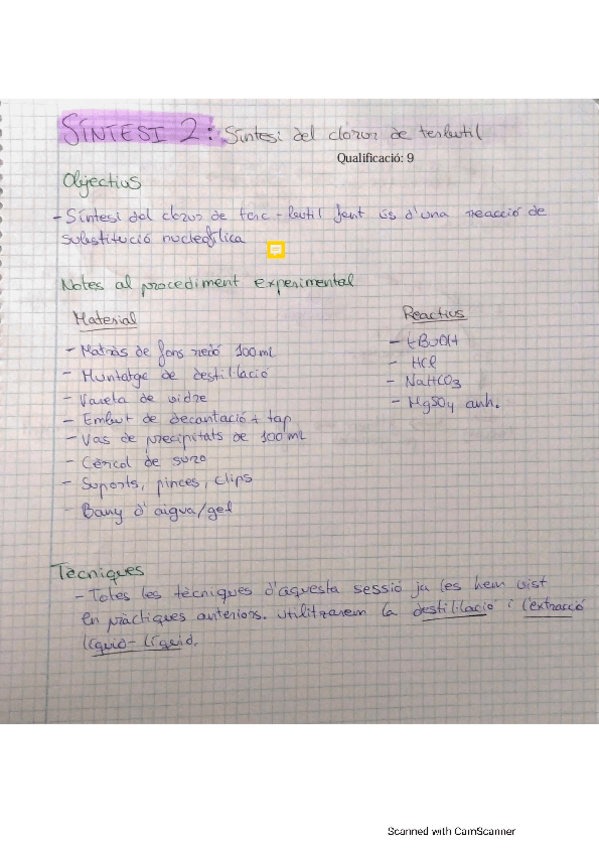 SÍNTESI 2: Síntesi del clorur de terbutil
Qualificació: 9
Objectius
- Síntesi del clorur de terc-butil fent ús d'una reacció de
substitució nucleofílica
Notes al procediment experimental
Material
- Matràs de fons rodó 100 mL
- Muntatge de destil·lació
- Vareta de vidre
- Embut de decantació + tap
- Vas de precipitats de 100 mL
- Cèrcol de suro
- Suports, pinces, clips
- Bany d'aigua/gel
Reactius
- tBuOH
- HCl
- NaHCO3
- MgSO4 anh.
Tècniques
- Totes les tècniques d'aquesta sessió ja les hem vist
en pràctiques anteriors. Utilitzarem la destil·lació i l'extracció
líquid-líquid.
Scanned with CamScanner